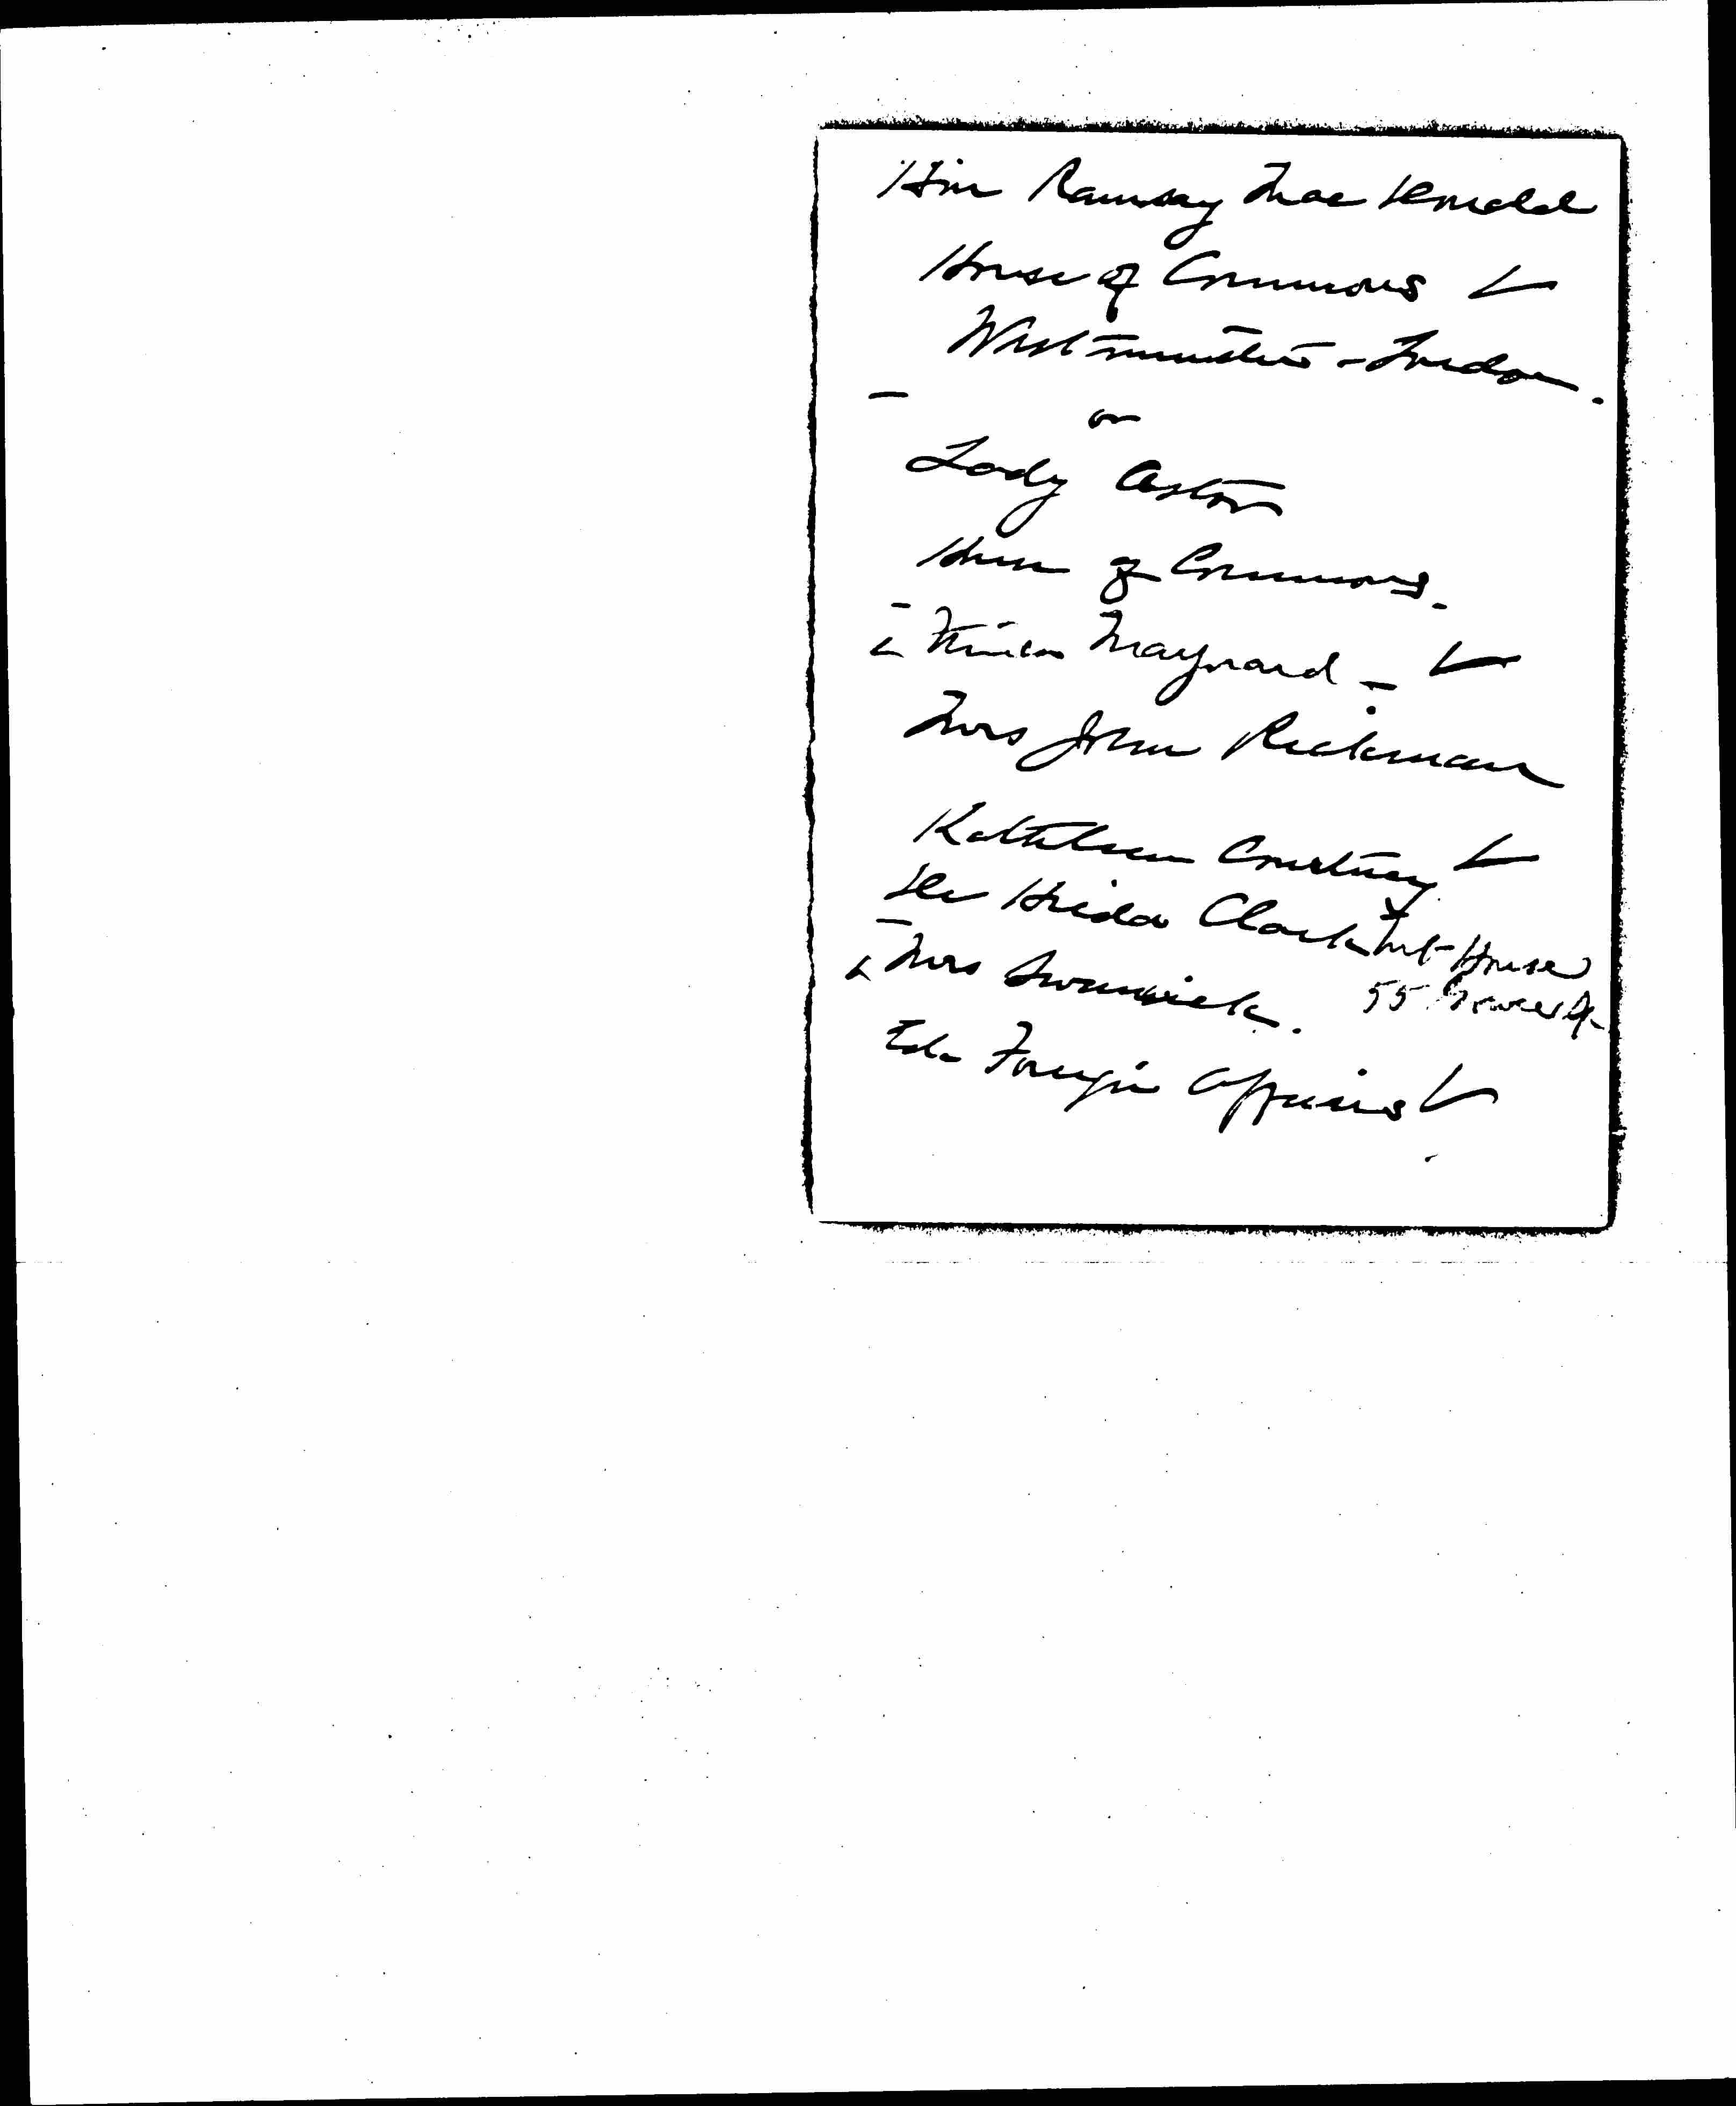 Hon Ramsay MacDonald
House of Commons
Westminster - London.
or
Lady Astor
House of Commons.
Maynard -
Mrs John Rickman
Kathleen Courtney
Dr Hilda Clark Int House
Mrs Swanwick. 55 Gower St
Ed. Foreign Affairs